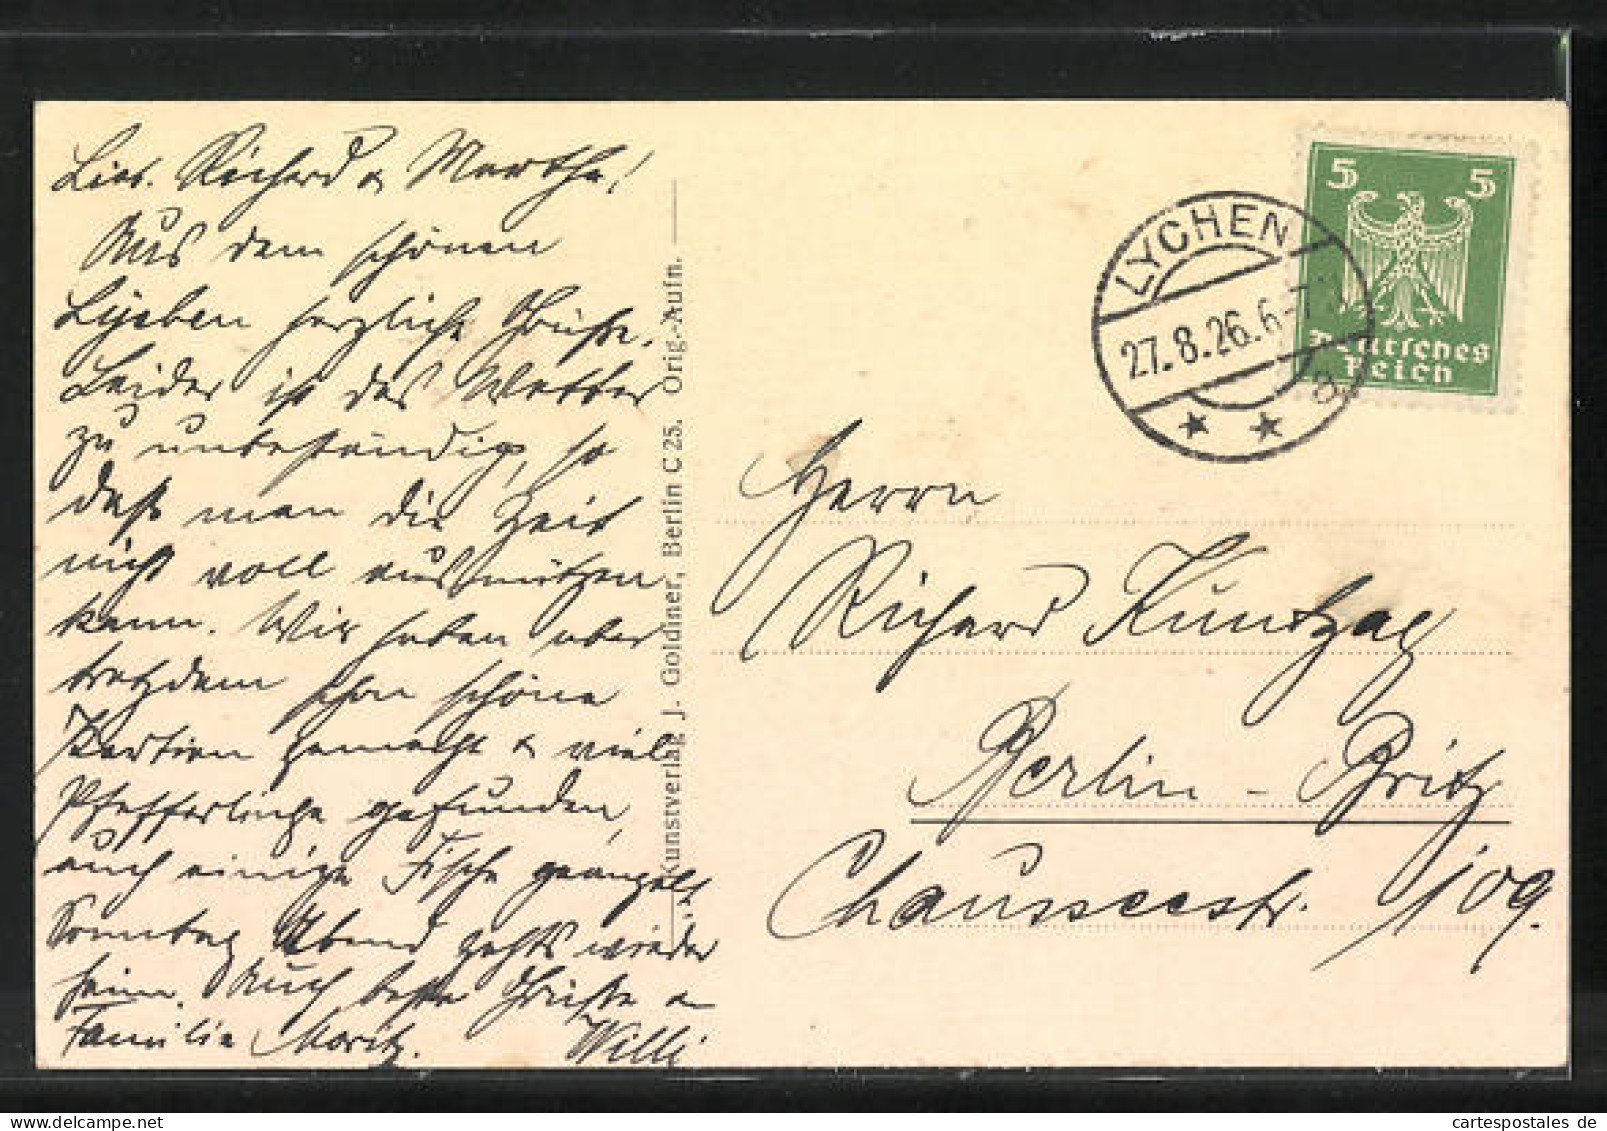 Lieb. Richard u Marthe!
Aus dem schönen
Lychen herzliche Grüße.
Leider ist das Wetter
zu unbeständig, so
daß man die Zeit
nicht voll ausnützen
kann. Wir haben aber
trotzdem schon schöne
Partien gemacht u viel
Pfefferlinge gefunden,
auch einige Fische geangelt
Sonntag Abend gehts wieder
heim. Auch beste Grüße an
Familie Moritz. Willi
Kunstverlag J. Goldiner, Berlin C 25. Orig.-Aufn.
LYCHEN
27.8.26.6-7
a
5 5
Deutsches
Reich
Herrn
Richard Kuntzag
Berlin - Britz
Chausseestr. 109.
cartespostales de